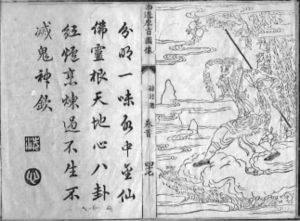 西遊原旨圖像
卷首
分明一味水中金仙
佛靈根天地心八卦
紅爐烹煉過不生不
滅鬼神欽